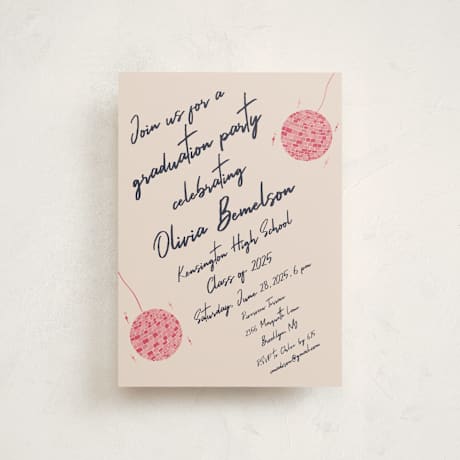 Join us for a
graduation party
celebrating
Olivia Bemelson
Kensington High School
Class of 2025
Saturday, June 28, 2025, 6 pm
Terrace
2166 Marquette Lane
Brooklyn, NY
RSVP to Chloe by 6/5